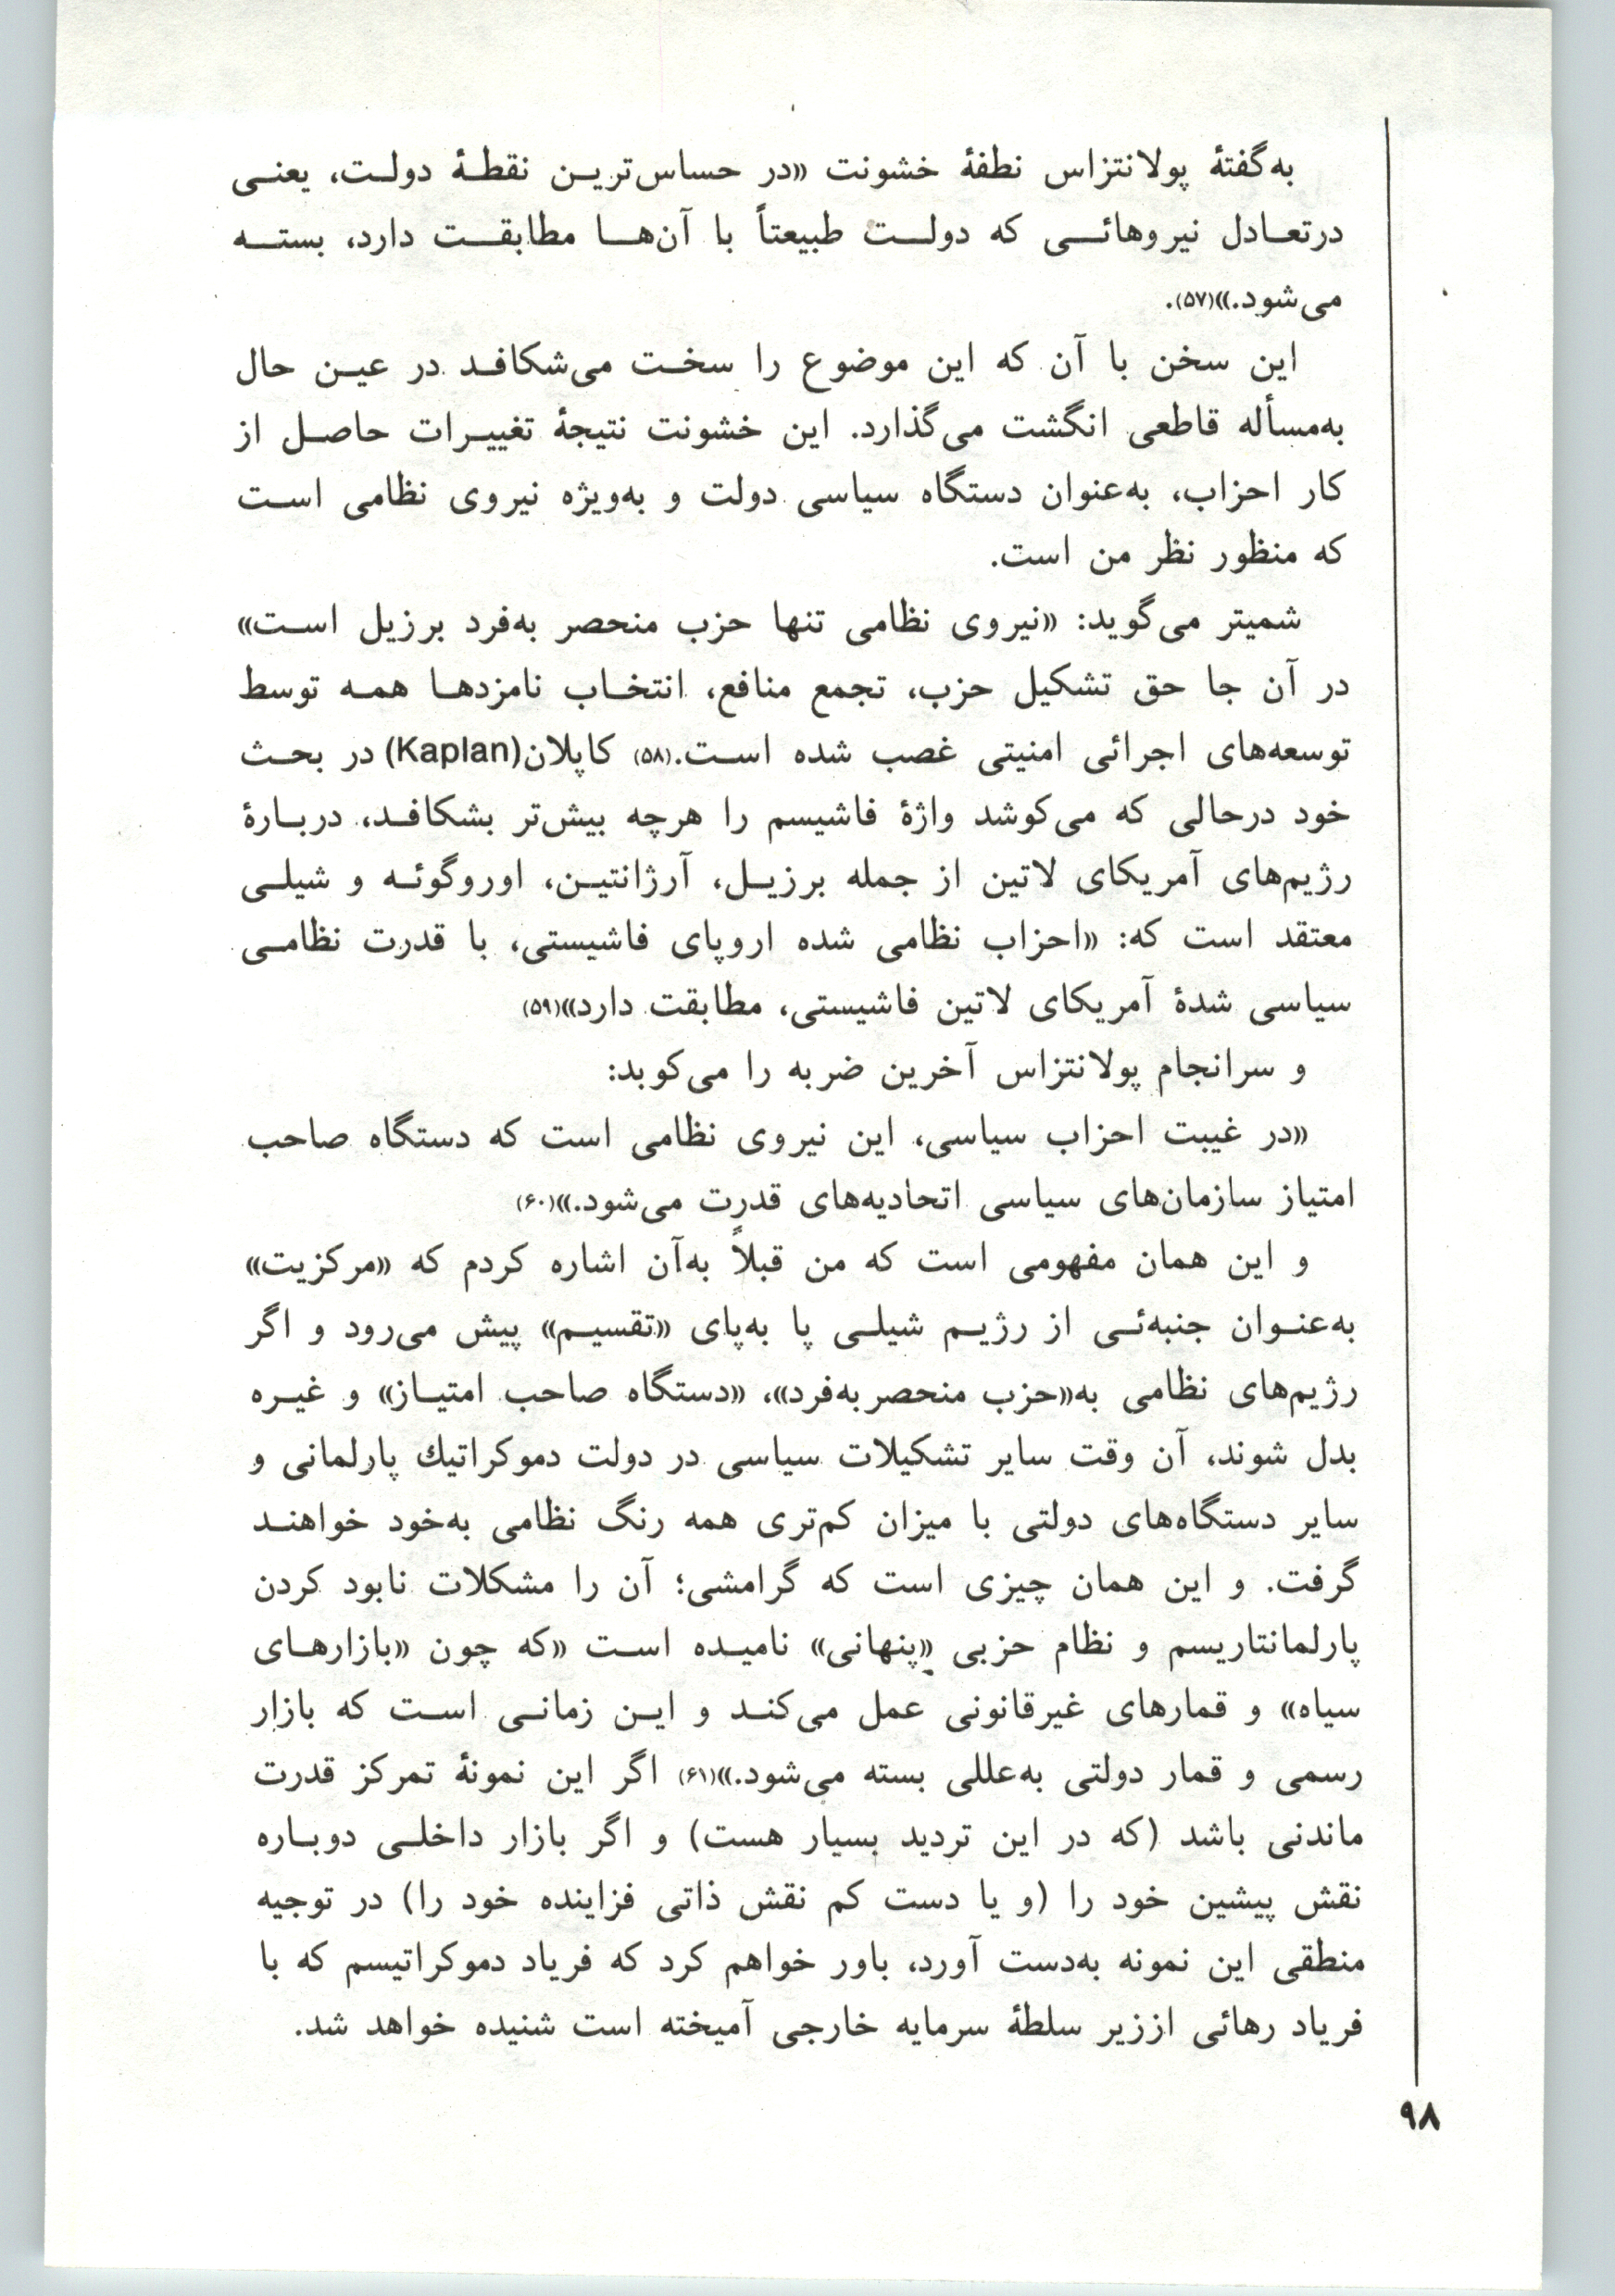 به‌گفتهٔ پولانتزاس نطفهٔ خشونت «در حساس‌ترین نقطهٔ دولت، یعنی
درتعادل نیروهائی که دولت طبیعتاً با آن‌ها مطابقت دارد، بسته
می‌شود.»(۵۷).
این سخن با آن که این موضوع را سخت می‌شکافد در عین حال
به‌مسأله قاطعی انگشت می‌گذارد. این خشونت نتیجهٔ تغییرات حاصل از
کار احزاب، به‌عنوان دستگاه سیاسی دولت و به‌ویژه نیروی نظامی است
که منظور نظر من است.
شمیتر می‌گوید: «نیروی نظامی تنها حزب منحصر به‌فرد برزیل است»
در آن جا حق تشکیل حزب، تجمع منافع، انتخاب نامزدها همه توسط
توسعه‌های اجرائی امنیتی غصب شده است.(۵۸) کاپلان(Kaplan) در بحث
خود درحالی که می‌کوشد واژهٔ فاشیسم را هرچه بیش‌تر بشکافد، دربارهٔ
رژیم‌های آمریکای لاتین از جمله برزیل، آرژانتین، اوروگوئه و شیلی
معتقد است که: «احزاب نظامی شده اروپای فاشیستی، با قدرت نظامی
سیاسی شدهٔ آمریکای لاتین فاشیستی، مطابقت دارد»(۵۹)
و سرانجام پولانتزاس آخرین ضربه را می‌کوبد:
«در غیبت احزاب سیاسی، این نیروی نظامی است که دستگاه صاحب
امتیاز سازمان‌های سیاسی اتحادیه‌های قدرت می‌شود.»(۶۰)
و این همان مفهومی است که من قبلاً به‌آن اشاره کردم که «مرکزیت»
به‌عنوان جنبه‌ئی از رژیم شیلی پا به‌پای «تقسیم» پیش می‌رود و اگر
رژیم‌های نظامی به«حزب منحصر به‌فرد»، «دستگاه صاحب امتیاز» و غیره
بدل شوند، آن وقت سایر تشکیلات سیاسی در دولت دموکراتیك پارلمانی و
سایر دستگاه‌های دولتی با میزان کم‌تری همه رنگ نظامی به‌خود خواهند
گرفت. و این همان چیزی است که گرامشی؛ آن را مشکلات نابود کردن
پارلمانتاریسم و نظام حزبی «پنهانی» نامیده است «که چون «بازارهای
سیاه» و قمارهای غیرقانونی عمل می‌کند و این زمانی است که بازار
رسمی و قمار دولتی به‌عللی بسته می‌شود.»(۶۱) اگر این نمونهٔ تمرکز قدرت
ماندنی باشد (که در این تردید بسیار هست) و اگر بازار داخلی دوباره
نقش پیشین خود را (و یا دست کم نقش ذاتی فزاینده خود را) در توجیه
منطقی این نمونه به‌دست آورد، باور خواهم کرد که فریاد دموکراتیسم که با
فریاد رهائی اززیر سلطهٔ سرمایه خارجی آمیخته است شنیده خواهد شد.
۹۸